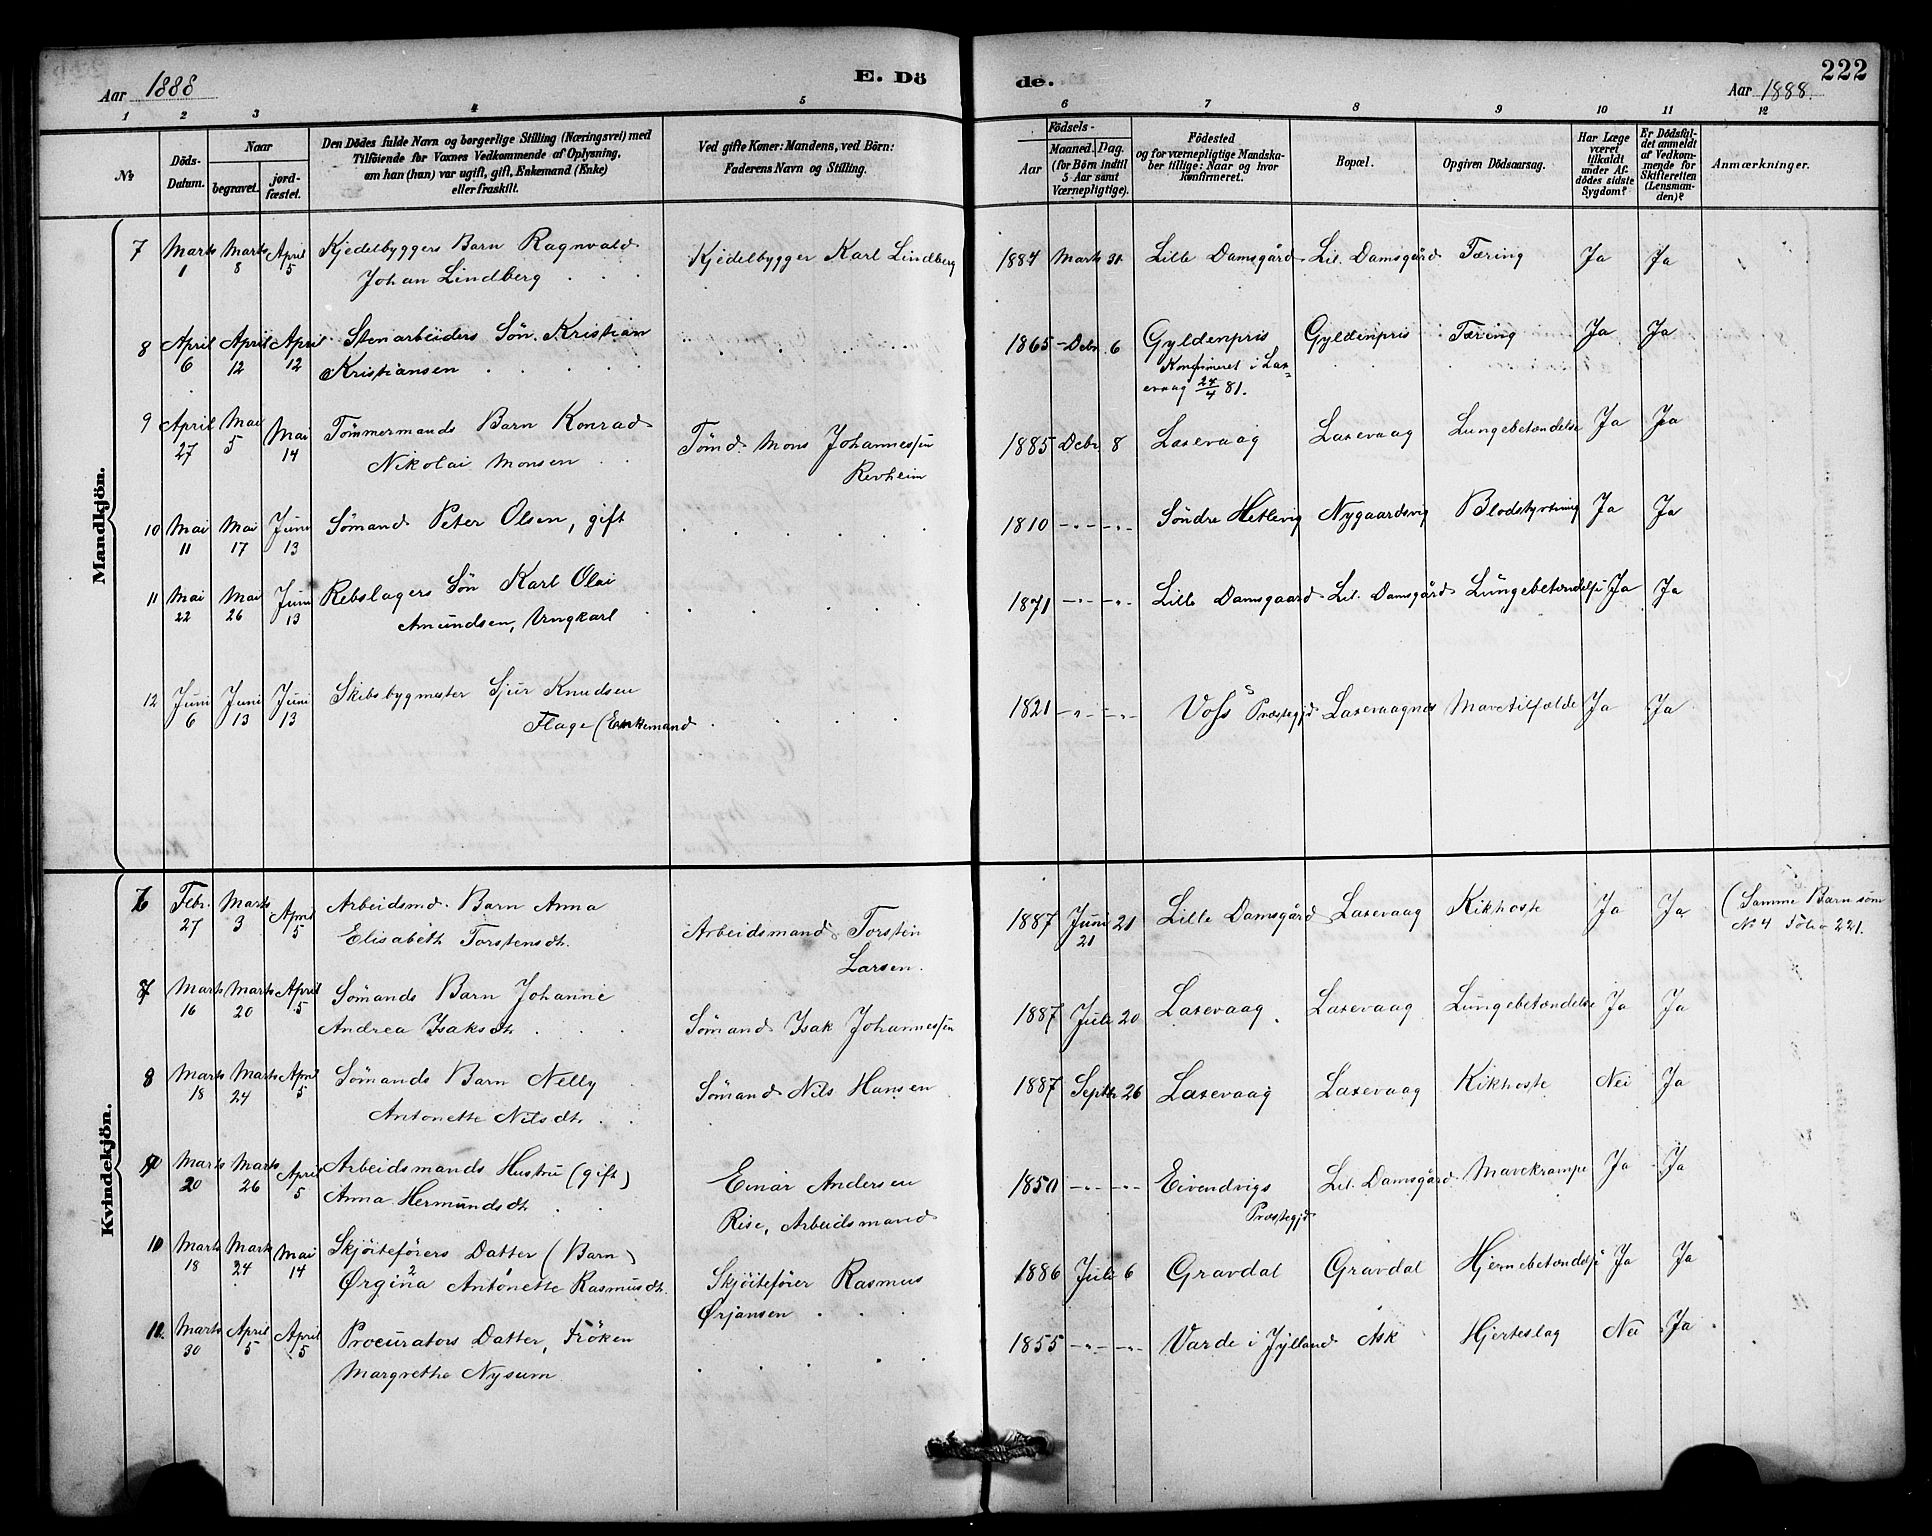 Aar 1888
E. Dö
de.
222
Aar 1888.
1 2 3 4 5 6 7 8 9 10 11 12
№
Döds-
Datum.
Naar
begravet.
jord-
fæstet.
Den Dödes fulde Navn og borgerlige Stilling (Næringsvei) med
Tilföiende for Voxnes Vedkommende af Oplysning,
om han (hun) var ugift, gift, Enkemand (Enke)
eller fraskilt.
Ved gifte Koner: Mandens, ved Börn:
Faderens Navn og Stilling.
Födsels-
Aar
Maaned. Dag.
(for Börn indtil
5 Aar samt
Værnepligtige).
Födested
og for værnepligtige Mandska-
ber tillige: Naar og hvor
konfirmeret.
Bopæl.
Opgiven Dödsaarsag.
Har Læge
været
tilkaldt
under Af-
dödes sidste
Sygdom?
Er Dödsfal-
det anmeldt
af Vedkom-
mende for
Skifteretten
(Lensman-
den)?
Anmærkninger.
Mandkjön.
7 Marts 1 Marts 8 April 5 Kjedelbyggers Barn Ragnvald Kjedelbygger Karl Lindberg 1887 Marts 31 Lille Damsgård Lil. Damsgård Tæring Ja Ja
Johan Lindberg
8 April 6 April 12 April 12 Stenarbeiders Sön Kristian 1865 Debr. 6 Gyldenpris Gyldenpris Tæring Ja Ja
Kristiansen Konfirmeret i Lax-
evaag 24/4 81.
9 April 27 Mai 5 Mai 14 Tömmermands Barn Konrad Tömd. Mons Johannessen 1885 Debr. 8 Laxevaag Laxevaag Lungebetændelse Ja Ja
Nikolai Monsen Revheim
10 Mai 11 Mai 17 Juni 13 Sömand Peter Olsen, gift 1810 -"- -"- Söndre Hetlevig Nygaardsvig Blodstyrtning Ja Ja
11 Mai 22 Mai 26 Juni 13 Rebslagers Sön Karl Olai 1871 -"- -"- Lille Damsgaard Lil. Damsgård Lungebetændelse Ja Ja
Amundsen, Ungkarl
12 Juni 6 Juni 13 Juni 13 Skibsbygmester Sjur Knudsen 1821 -"- -"- Voss Præstegjd Laxevaagnes Mavetilfælde Ja Ja
Flage (Enkemand
Kvindekjön.
6 Febr. 27 Marts 3 April 5 Arbeidsmd. Barn Anna Arbeidsmand Torsten 1887 Juni 21 21 Lille Damsgård Laxevaag Kikhoste Ja Ja (Samme Barn som
Elisabeth Torstensdt. Larsen. No 4 Folio 221.
7 Marts 16 Marts 20 April 5 Sömands Barn Johanne Sömand Isak Johannessen 1887 Juli 20 Laxevaag Laxevaag Lungebetændelse Ja Ja
Andrea Isaksdt.
8 Marts 18 Marts 24 April 5 Sömands Barn Nelly Sömand Nils Hansen 1887 Septbr 26 Laxevaag Laxevaag Kikhoste Nei Ja
Antonette Nilsdt.
9 Marts 20 Marts 26 April 5 Arbeidsmands Hustru (gift) Einar Andersen 1850 -"- -"- Eivendvigs Lil. Damsgård Mavekrampe Ja Ja
Anna Hermundsdt. Rise, Arbeidsmand Præstegjd
10 Marts 18 Marts 24 Mai 14 Skjöiteförers Datter (Barn) Skjöiteförer Rasmus 1886 Juli 6 Gravdal Gravdal Hjernebetændelse Ja Ja
Ørgina Antonette Rasmusdt. Ørjansen
11. Marts 30 April 5 April 5 Procurators Datter, Fröken 1855 -"- -"- Varde i Jylland Ask Hjerteslag Nei Ja
Margrethe Nysum